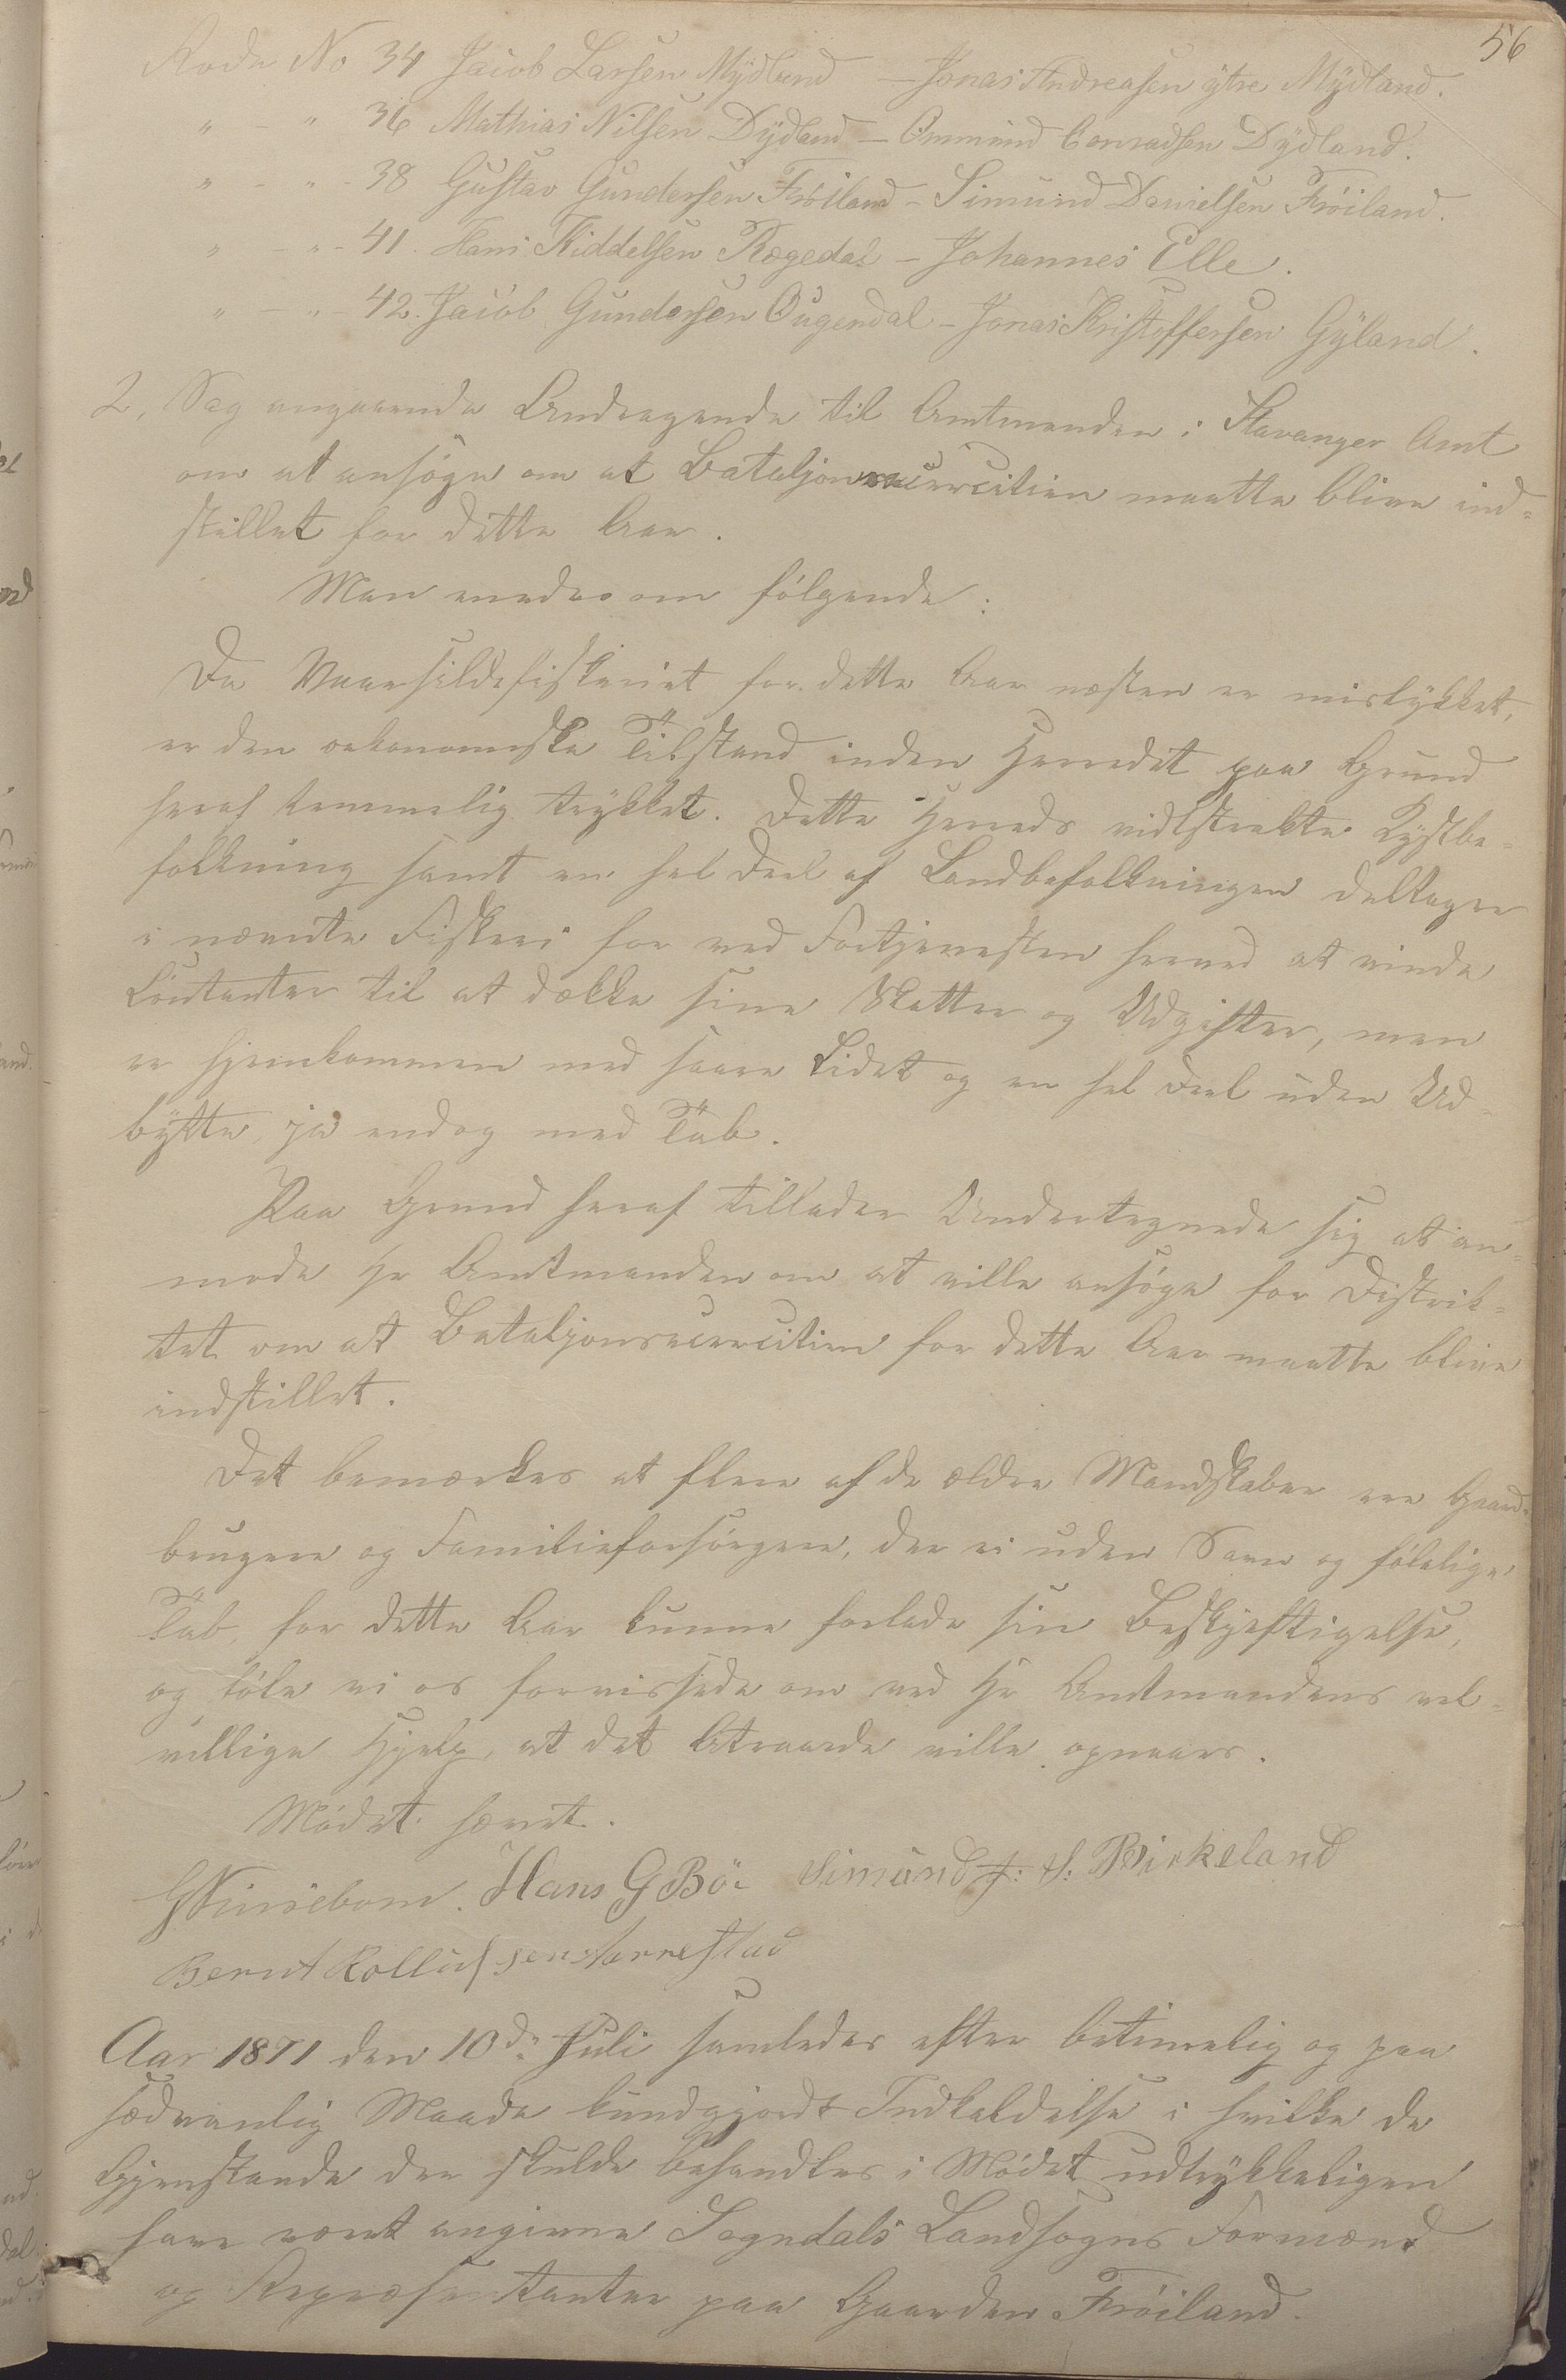 56
Rode No 34 Jacob Larsen Mydland — Jonas Andreasen ytre Mydland.
" — " 36 Mathias Nilsen Dydland — Ommund Conradsen Dydland.
" — " - 38 Gustav Gundersen Frøiland — Simund Danielsen Frøiland.
" — " - 41. Hans Kiddelsen Rægedal — Johannes Elle.
" — " - 42. Jacob Gundersen Ougendal — Jonas Kristoffersen Gyland.
2, Sag angaaende Andragende til Amtmanden i Stavanger Amt
om at ansøge om at Bataljonsexercitien maatte blive ind-
stillet for dette Aar.
Man enedes om følgende:
Da Vaarsildefiskeriet for dette Aar næsten er mislykket,
er den oekonomiske Tilstand inden Herredet paa Grund
heraf temmelig trykket. Dette Herreds vidtstrakte Kystbe-
folkning samt en hel Deel af Landbefolkningen deltager
i nævnte Fiskeri for ved Fortjenesten herved at vinde
Contanter til at dække sine Skatter og Udgifter, men
er hjemkommen med saare Lidet og en hel Deel uden Ud-
bytte, ja endog med Tab.
Paa Grund heraf tillader Undertegnede sig at an-
mode Hr Amtmanden om at ville ansøge for Distrik-
tet om at Bataljonsexercitien for dette Aar maatte blive
indstillet.
Det bemærkes at flere af de ældre Mandskaber ere Gaard-
brugere og Familieforsørgere, der ei uden Savn og følelige
Tab, for dette Aar kunne forlade sin Beskjeftigelse,
og føle vi os forvissede om ved Hr Amtmandens vel-
villige Hjelp, at det Attraaede ville opnaaes.
Mødet hævet.
Hans G Bø Simund J: S: Birkeland
Bernt Rollufsen Aarrestad
Aar 1871 den 10de Juli samledes efter betimelig og paa
sædvanlig Maade kundgjordt Indkaldelse i hvilke de
Gjenstande der skulde behandles i Mødet udtrykkeligen
have været angivne Sogndals Landsogns Formænd
og Repræsentanter paa Gaarden Frøiland.